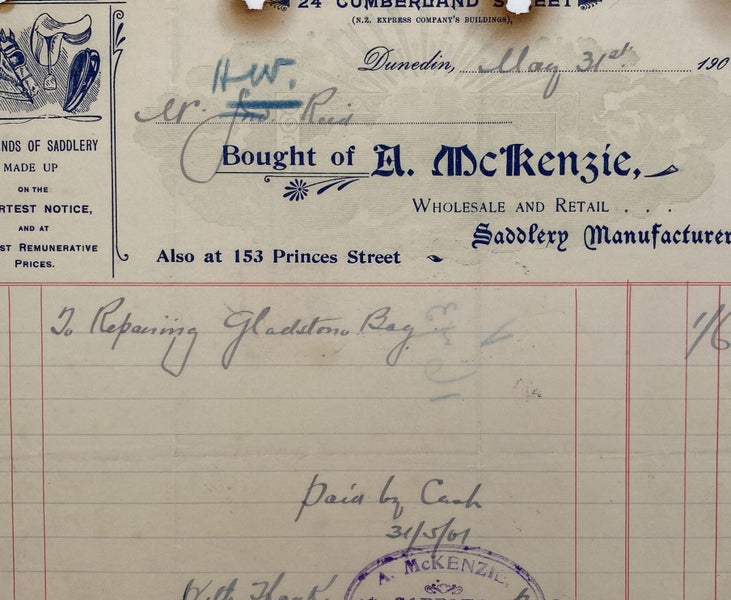 24 CUMBERLAND STREET
(N.Z. EXPRESS COMPANY'S BUILDINGS),
Dunedin, May 31st 190
H.W.
Mr. Jno Reid
Bought of A. McKenzie,
WHOLESALE AND RETAIL . . .
Saddlery Manufacturer
Also at 153 Princes Street
NDS OF SADDLERY
MADE UP
ON THE
RTEST NOTICE,
AND AT
ST REMUNERATIVE
PRICES.
To Repairing Gladstone Bag 1/6
Paid by Cash
31/5/01
With Thanks
A. McKENZIE,